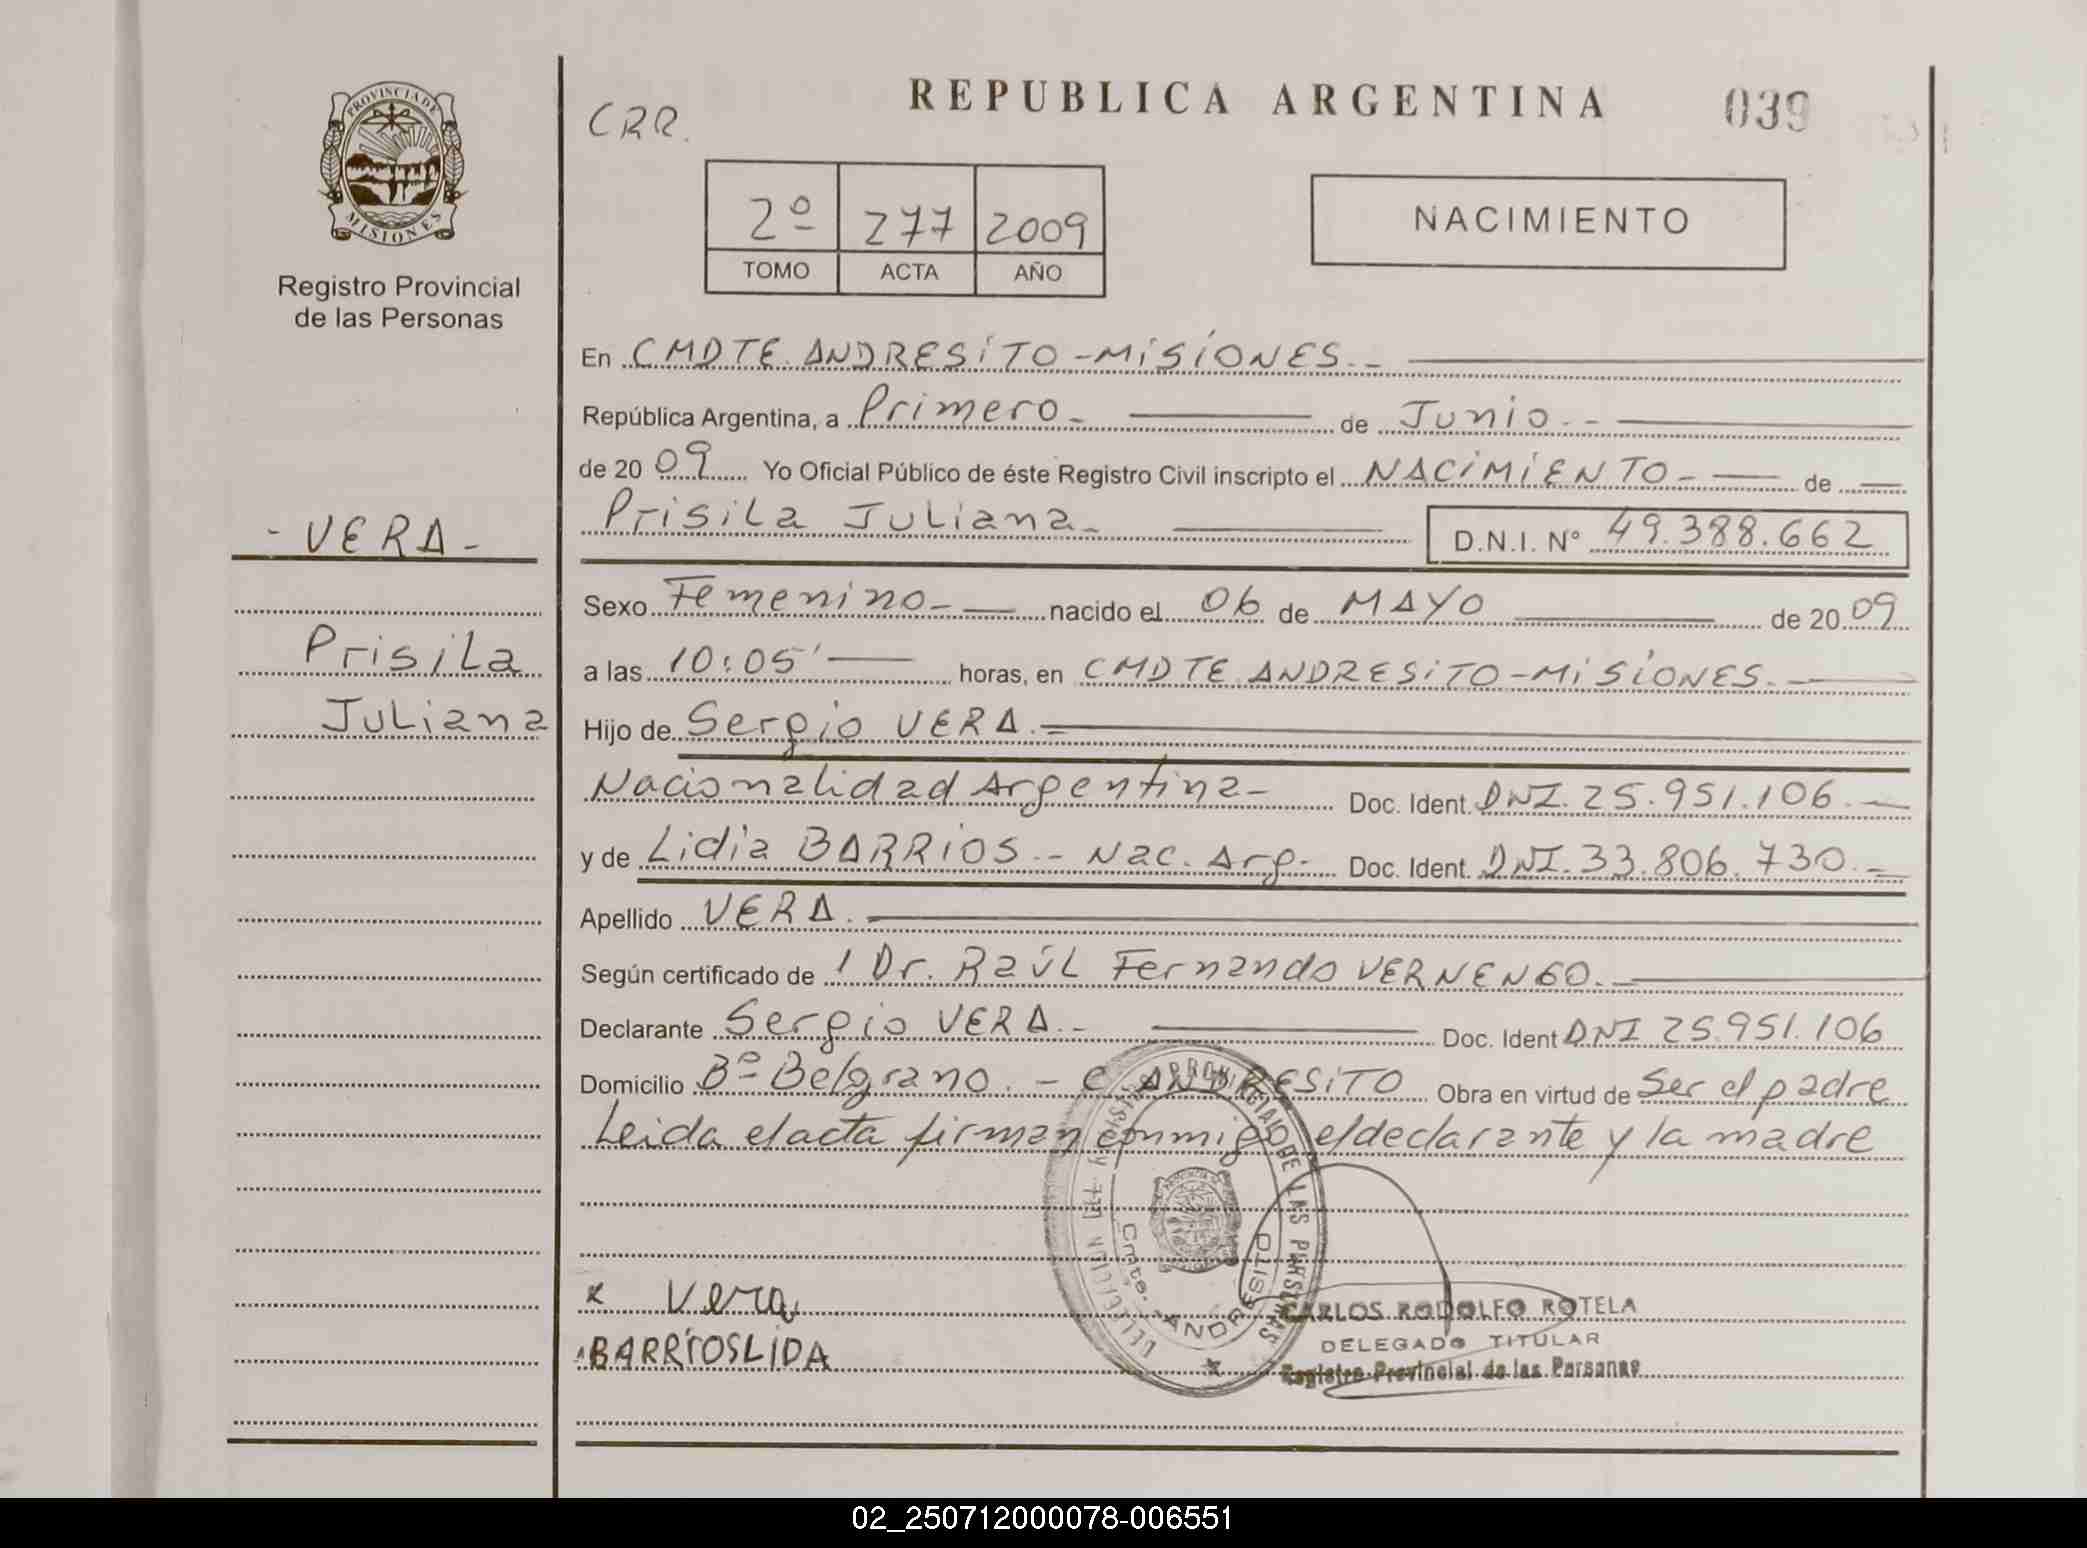 REPUBLICA ARGENTINA
039
CRR.
PROVINCIA DE
MISIONES
Registro Provincial
de las Personas
2º 277 2009
TOMO ACTA AÑO
NACIMIENTO
En CMDTE. ANDRESiTO-MiSiONES.-
República Argentina, a Primero- de Junio.-
de 2009 Yo Oficial Público de éste Registro Civil inscripto el NACiMiENTO- de
Prisila Juliana- D.N.I. Nº 49.388.662
- VERA -
Prisila
Juliana
Sexo Femenino- nacido el 06 de MAYO de 2009
a las 10:05' horas, en CMDTE. ANDRESiTO-MiSiONES.-
Hijo de Sergio VERA.-
Nacionalidad Argentina- Doc. Ident. DNI. 25.951.106.-
y de Lidia BARRiOS.- Nac. Arg. Doc. Ident. DNI. 33.806.730.-
Apellido VERA.
Según certificado de / Dr. Raúl Fernando VERNENGO.-
Declarante Sergio VERA.- Doc. Ident DNI 25.951.106
Domicilio Bº Belgrano.- C. ANDRESiTO Obra en virtud de Ser el padre
Leida el acta firman conmigo el declarante y la madre
DE LAS PERSONAS
Cmte. ANDRESITO
x Vera
BARRIOSLIDA
CARLOS RODOLFO ROTELA
DELEGADO TITULAR
Registro Provincial de las Personas
02_250712000078-006551